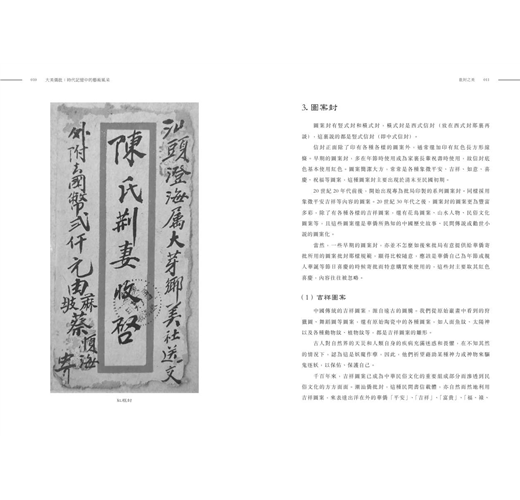 汕頭澄海属大芽鄉美社送交
陳氏荊妻收啓
外附國幣弍仟元由
蔡
紅條封
3. 圖案封
圖案封有豎式封和橫式封，橫式封是西式信封（將在西式封那裏再
談），這裏說的都是豎式信封（即中式信封）。
信封正面除了印有各種各樣的圖案外，通常還加印有紅色長方形邊
條。早期的圖案封，多在年節時使用或為家裏長輩祝壽時使用，故信封底
色基本使用紅色。圖案幾讓大方，常常是各種象徵平安、吉祥、如意、喜
慶、祝福等圖案。這種圖案封主要出現於清末至民國初期。
20 世紀 20 年代前後，開始出現專為批局印製的系列圖案封，同樣採用
象徵平安吉祥等內容的圖案。20 世紀 30 年代之後，圖案封的圖案更為豐富
多彩，除了有各種各樣的吉祥圖案，還有花鳥圖案、山水人物、民俗文化
圖案等，且這些圖案還是華僑所熟知的中國歷史故事、民間傳說或數世小
說的圖案化。
當然，一些早期的圖案封，亦並不怎麼如後來批局有意提供給華僑寄
批所用的圖案批封那樣規範，顯得比較隨意，應該是華僑自己為年節或親
人華誕等節日喜慶的時候寄批前特意購買來使用的，這些封主要取其紅色
喜慶，內容往往被忽略。
（1）吉祥圖案
中國傳統的吉祥圖案，源自遠古的圖騰。我們從原始巖畫中看到的狩
獵圖、舞蹈圖等圖案，還有原始陶瓷中的各種圖案，如人面魚紋、太陽神
以及各種動物紋、植物紋等，都是吉祥圖案的雛形。
古人對自然界的天災和人類自身的疾病充滿迷惑和畏懼，在不知其然
的情況下，認為這是妖魔作祟。因此，他們祈望藉助某種神力或神物來驅
鬼逐妖，以保佑、保護自己。
千百年來，吉祥圖案已成為中華民俗文化的重要組成部分而滲透到民
俗文化的方方面面。潮汕僑批封，這種民間書信載體，亦自然而然地利用
吉祥圖案，來表達出洋在外的華僑「平安」、「吉祥」、「富貴」、「福、祿、